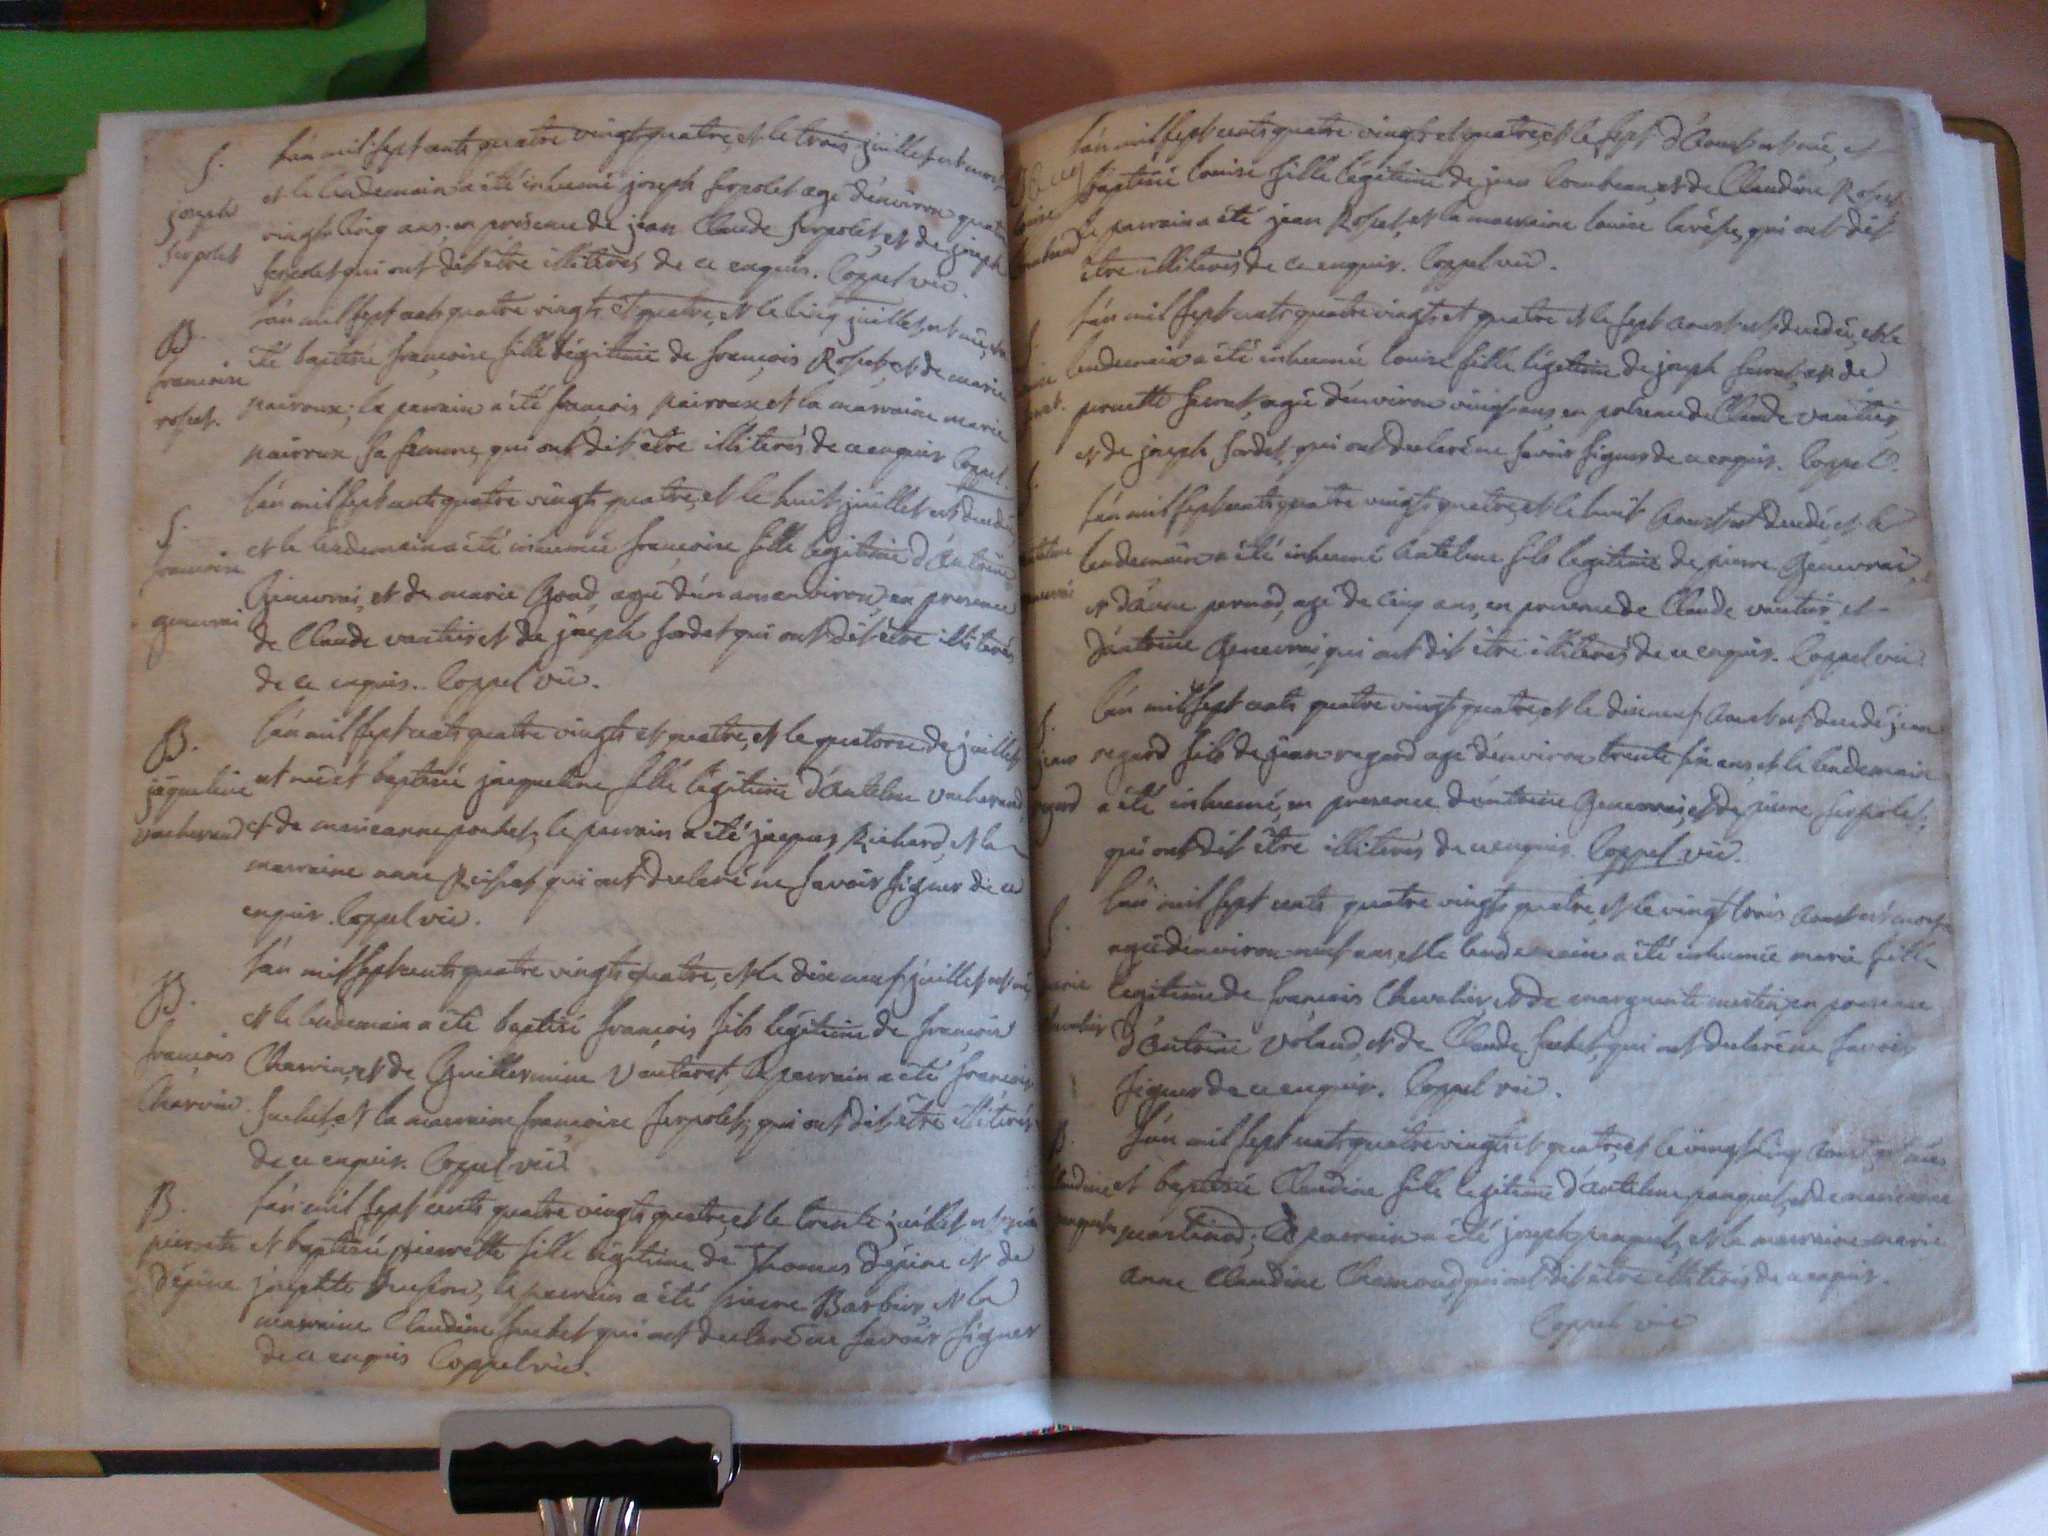 S.
joseph
serpolet
L'an mil sept cents quatre vingt quatre, et le trois juillet est mort
et le lendemain a été inhumé joseph serpolet agé d'environ quatre
vingt cinq ans, en présence de jean Claude serpolet, et de joseph
serpolet qui ont dit être illiterés de ce enquis. Coppel vic.
B.
francoise
roset.
L'an mil sept cents quatre vingts et quatre, et le cinq juillet est née, et a
été baptisée françoise fille légitime de françois Roset, et de marie
pairoux; le parrain a été françois pairoux et la marraine marie
pairoux sa femme, qui ont dit être illiterés de ce enquis Coppel.
S.
francoise
genevrai
L'an mil sept cents quatre vingts quatre, et le huit juillet est decedée,
et le lendemain a été inhumée françoise fille legitime d'Antoine
Genevrai, et de marie Goud, agée d'un an environ, en presence
de Claude vautier et de joseph sordet qui ont dit être illiterés
de ce enquis. Coppel vic.
B.
jaqueline
vacherand
L'an mil sept cents quatre vingts et quatre, et le quatorze de juillet
est née et baptisée jacqueline fille légitime d'Antelme vacherand,
et de marieanne pochet, le parrain a été jacques Richard, et la
marraine anne qui ont declaré ne savoir signer de ce
enquis. Coppel vic.
B.
françois
Charvin
L'an mil sept cents quatre vingts quatre, et le dix neuf juillet est né,
et le lendemain a été baptisé françois fils légitime de françois
Charvin, et de Guillermine Vautaret, le parrain a été françois
suchet, et la marraine françoise serpolet, qui ont dit être illiterés
de ce enquis. Coppel vic.
B.
pierrete
dépine
L'an mil sept cents quatre vingts quatre, et le trente juillet est née
et baptisée pierrette fille légitime de Thomas dépine et de
josephte le parrain a été pierre Barbier, et la
marraine Claudine suchet qui ont declaré ne savoir signer
de ce enquis Coppel vic.
L'an mil sept cents quatre vingts et quatre, et le sept d'Aoust est née, et
baptisée louise fille légitime de jean Combeau, et de Claudine Roset
le parrain a été jean Roset, et la marraine louise qui ont dit
être illiterés de ce enquis. Coppel vic.
L'an mil sept cents quatre vingts et quatre et le sept Aoust est decedée, et le
lendemain a été inhumée louise fille légitime de joseph et de
pernette agée d'environ vingt ans, en présence de Claude vautier,
et de joseph sordet, qui ont declaré ne savoir signer de ce enquis. Coppel.
L'an mil sept cents quatre vingts quatre, et le huit Aoust est decedé et le
lendemain a été inhumé Antelme fils legitime de pierre Genevrai,
et d'anne pernod, agé de cinq ans, en presence de Claude vautier, et
d'antoine Genevrai, qui ont dit être illiterés de ce enquis. Coppel vic
S.
jean
regard
L'an mil sept cents quatre vingt quatre, et le dixneuf Aoust est decedé jean
regard fils de jean regard agé d'environ trente six ans, et le lendemain
a été inhumé, en presence d'antoine Genevrai, et de pierre serpolet,
qui ont dit être illiterés de ce enquis. Coppel vic.
S.
marie
chevalier
L'an mil sept cents quatre vingts quatre, et le vingt trois Aoust est morte
agée d'environ neuf ans, et le lendemain a été inhumée marie fille
legitime de françois Chevalier, et de marguerite mestin, en presence
d'Antoine Voland, et de Claude suchet, qui ont declaré ne savoir
signer de ce enquis. Coppel vic.
B.
Claudine
L'an mil sept cents quatre vingts et quatre, et le vingt cinq Aoust, est née
et baptisée Claudine fille legitime d'Antelme et de marieanne
martinod; le parrain a été joseph et la marraine marie
anne Claudine Chamoud, qui ont dit être illiterés de ce enquis.
Coppel vic